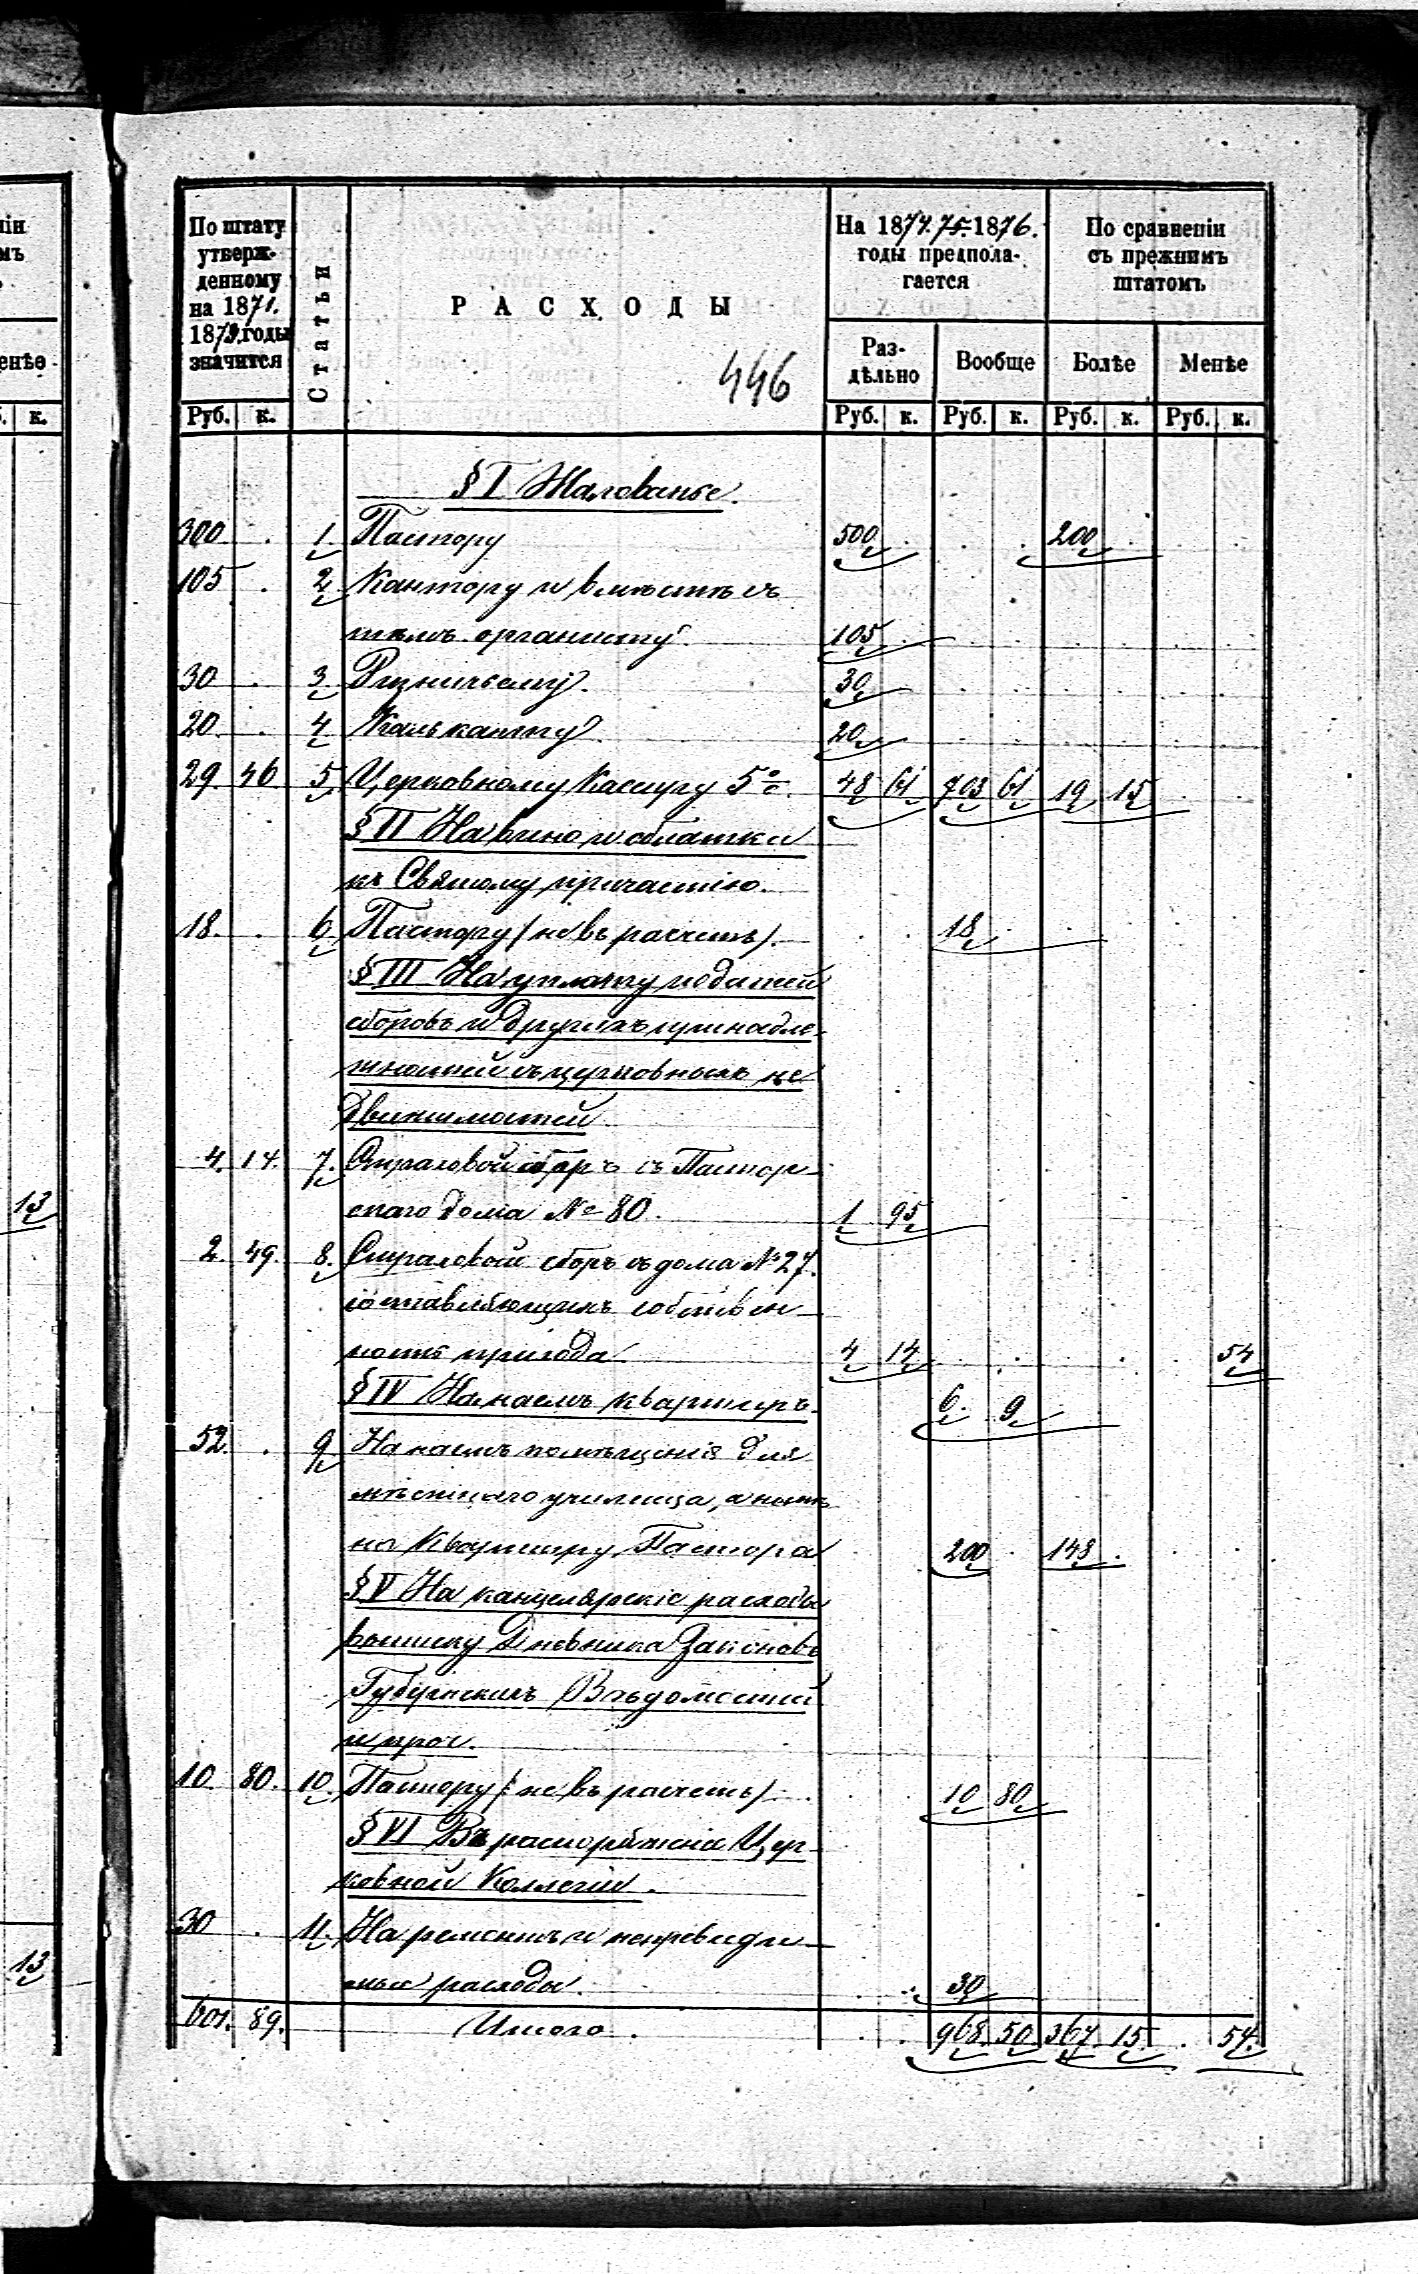 ніи
мъ
енѣе
к.
13
13
По штату
утверж-
денному
на 1871.
1873 годы
значится
Статьи
РАСХОДЫ
446
На 1874.75.1876.
годы предпола-
гается
По сравненіи
съ прежнимъ
штатомъ
Раз-
дѣльно
Вообще
Болѣе
Менѣе
Руб. к. Руб. к. Руб. к. Руб. к. Руб. к.
§ I Жалованье.
300 . 1. Пастору 500 . . . 200 .
105 . 2. Кантору и вмѣстѣ съ
тѣмъ органисту 105 .
30 . 3. Ризничьему. 30
20 . 4. Калканту 20
29. 46. 5. Церковному Кассиру 5%. 48 61 703 61 19 15
§ II На вино и облатки
къ Святому причастію.
18. . 6. Пастору (не въ расчетъ). . . 18 .
§ III На уплату податей
сборовъ и другихъ принадле-
жностей съ церковныхъ не
движимостей
4. 14. 7. Страховой сборъ съ Пастор-
скаго дома № 80. 1 95
2. 49. 8. Страховой сборъ съ дома № 27.
составляющихъ собствен-
ность прихода 4 14 54
§ IV На наемъ квартиръ.
6. 9
52. . 9. На наемъ помѣщенія для
мѣстнаго училища, а нынѣ
на Квартиру Пастора 200 . 148 .
§ V На канцелярскіе расходы
выписку Дневника Законовъ
Губернскихъ Вѣдомостей
и проч.
10. 80. 10. Пастору (не въ расчетъ) 10 80
§ VI Въ распоряженіе Цер-
ковной Коллегіи.
30 . 11. На ремонтъ и непредвиди-
мые расходы. 30
601. 89. Итого. 968. 50 367. 15. . 54.